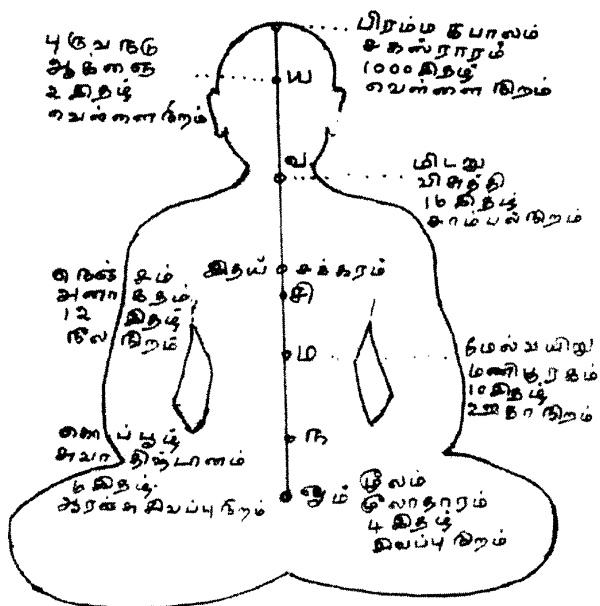 பிரம்ம கபாலம்
சகஸ்ராரம்
1000 இதழ்
வெள்ளை நிறம்
புருவநடு
ஆக்ஞை
2 இதழ்
வெள்ளை நிறம்
ய
வ
மிடறு
விசுத்தி
16 இதழ்
சாம்பல் நிறம்
இதய சக்கரம்
சி
நெஞ்சம்
அனாகதம்
12 இதழ்
நீல நிறம்
ம
மேல்வயிறு
மணிபூரகம்
10 இதழ்
ஊதா நிறம்
ந
கொப்பூழ்
சுவாதிஷ்டானம்
6 இதழ்
ஆரஞ்சு சிவப்பு நிறம்
ஓம்
மூலம்
மூலாதாரம்
4 இதழ்
சிவப்பு நிறம்